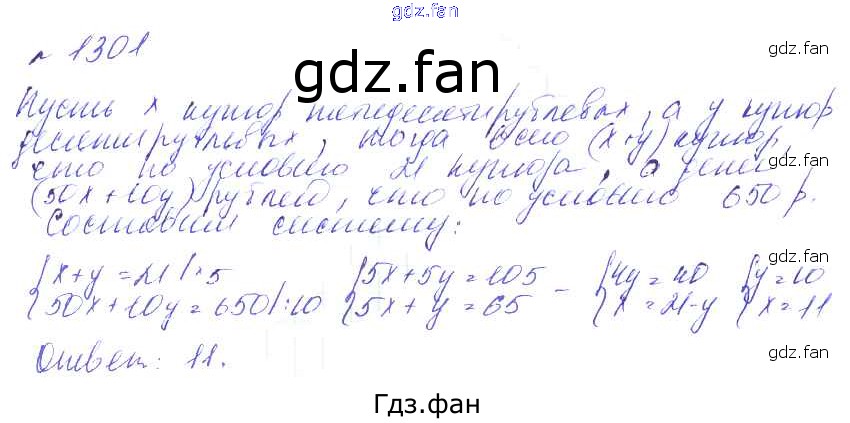 gdz.fan
№ 1301
gdz.fan
gdz.fan
Пусть x купюр пятидесятирублевых, а y купюр
десятирублевых, тогда всего (x+y) купюр,
что по условию 21 купюра, а денег
(50x+10y) рублей, что по условию 650 р.
Составим систему:
gdz.fan
{x+y=21 |·5 {5x+5y=105 - {4y=40 {y=10
{50x+10y=650 |:10 {5x+y=65 {x=21-y {x=11
Ответ: 11.
gdz.fan
Гдз.фан